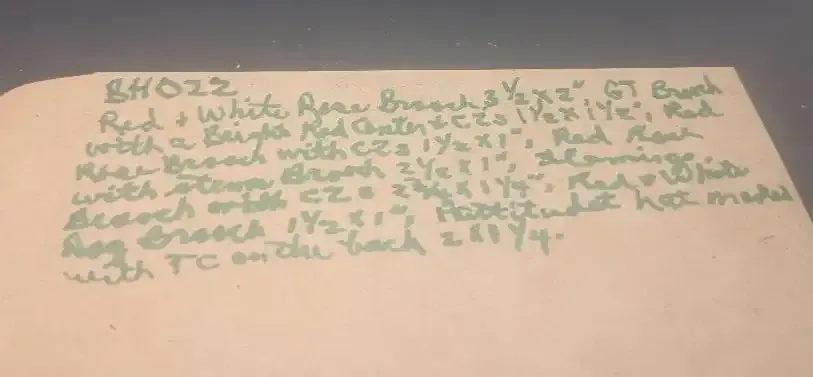 BH022
Red + White Rose Brooch 3 1/2 x 2", GT Brooch
with a Bright Red Center & CZs 1 1/2 x 1 1/2", Red
Rose Brooch with CZs 1 1/2 x 1", Red
with stem Brooch 2 1/2 x 1", Flamingo
Brooch with CZs 2 x 1 1/4", Red + White
Brooch 1 1/2 x 1", hat marked
with TC on the back 2 x 1 1/4"